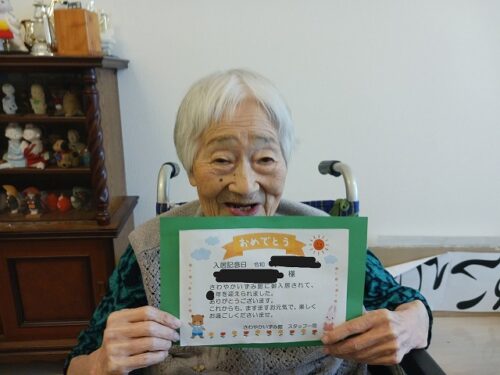 おめでとう
入居記念日 令和
様
さわやかいずみ館に御入居されて、
年を迎えられました。
ありがとうございます。
これからも、ますますお元気で、楽しく
お過ごしくださいませ。
さわやかいずみ館 スタッフ一同